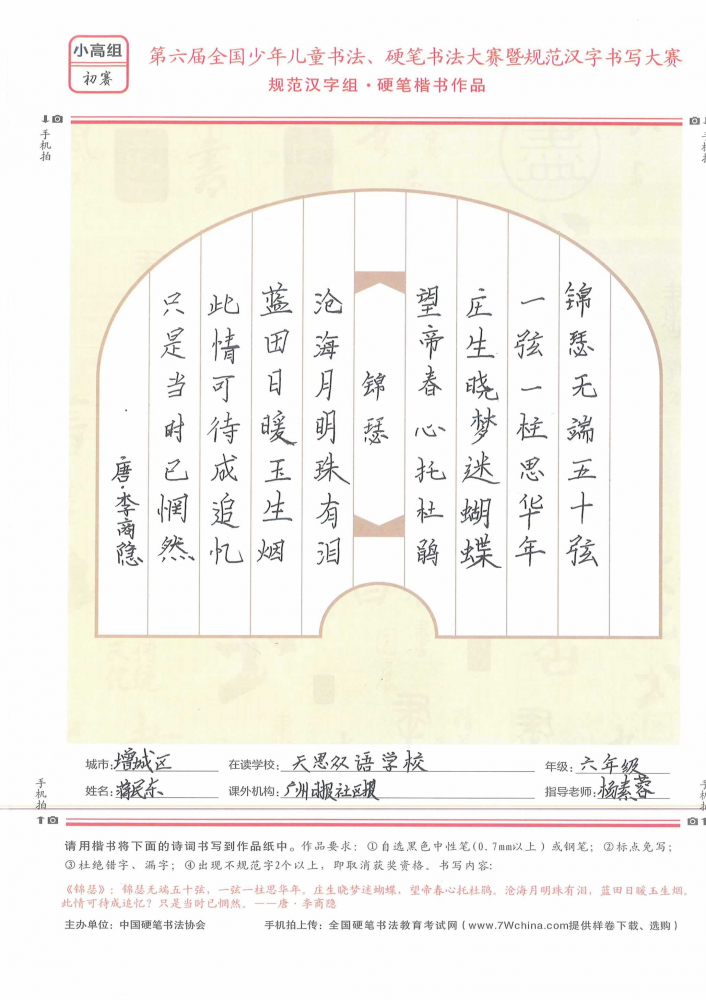 小高组
初赛
第六届全国少年儿童书法、硬笔书法大赛暨规范汉字书写大赛
规范汉字组·硬笔楷书作品
手机拍
手机拍
锦瑟无端五十弦
一弦一柱思华年
庄生晓梦迷蝴蝶
望帝春心托杜鹃
锦瑟
沧海月明珠有泪
蓝田日暖玉生烟
此情可待成追忆
只是当时已惘然
唐·李商隐
城市:增城区 在读学校:天思双语学校 年级:六年级
姓名: 课外机构:广州日报社区报 指导老师:杨素蓉
手机拍
手机拍
请用楷书将下面的诗词书写到作品纸中。作品要求:①自选黑色中性笔(0.7mm以上)或钢笔;②标点免写;
③杜绝错字、漏字;④出现不规范字2个以上,即取消获奖资格。书写内容:
《锦瑟》:锦瑟无端五十弦,一弦一柱思华年。庄生晓梦迷蝴蝶,望帝春心托杜鹃。沧海月明珠有泪,蓝田日暖玉生烟。
此情可待成追忆?只是当时已惘然。——唐·李商隐
主办单位:中国硬笔书法协会 手机拍上传:全国硬笔书法教育考试网(www.7Wchina.com提供样卷下载、选购)